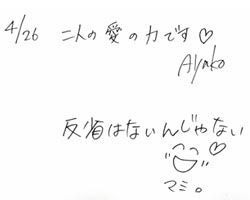 4/26 二人の愛の力です♡
Ayako
反省はないんじゃない
♡
マミ。